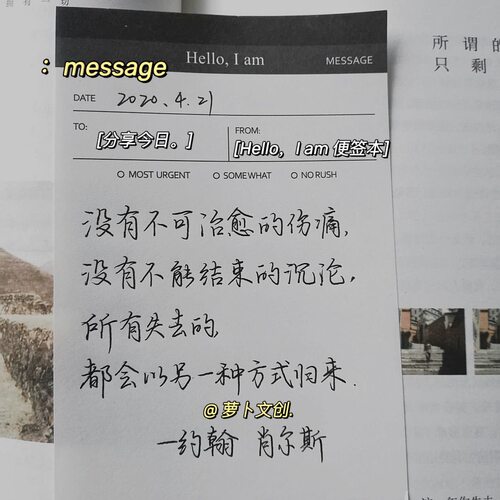 所谓的
只剩
Hello, I am
: message
MESSAGE
DATE 2020.4.21
TO: [分享今日。]
FROM: [Hello, I am 便签本]
MOST URGENT SOMEWHAT NO RUSH
没有不可治愈的伤痛,
没有不能结束的沉沦,
所有失去的,
都会以另一种方式归来.
@萝卜文创.
一约翰 肖尔斯